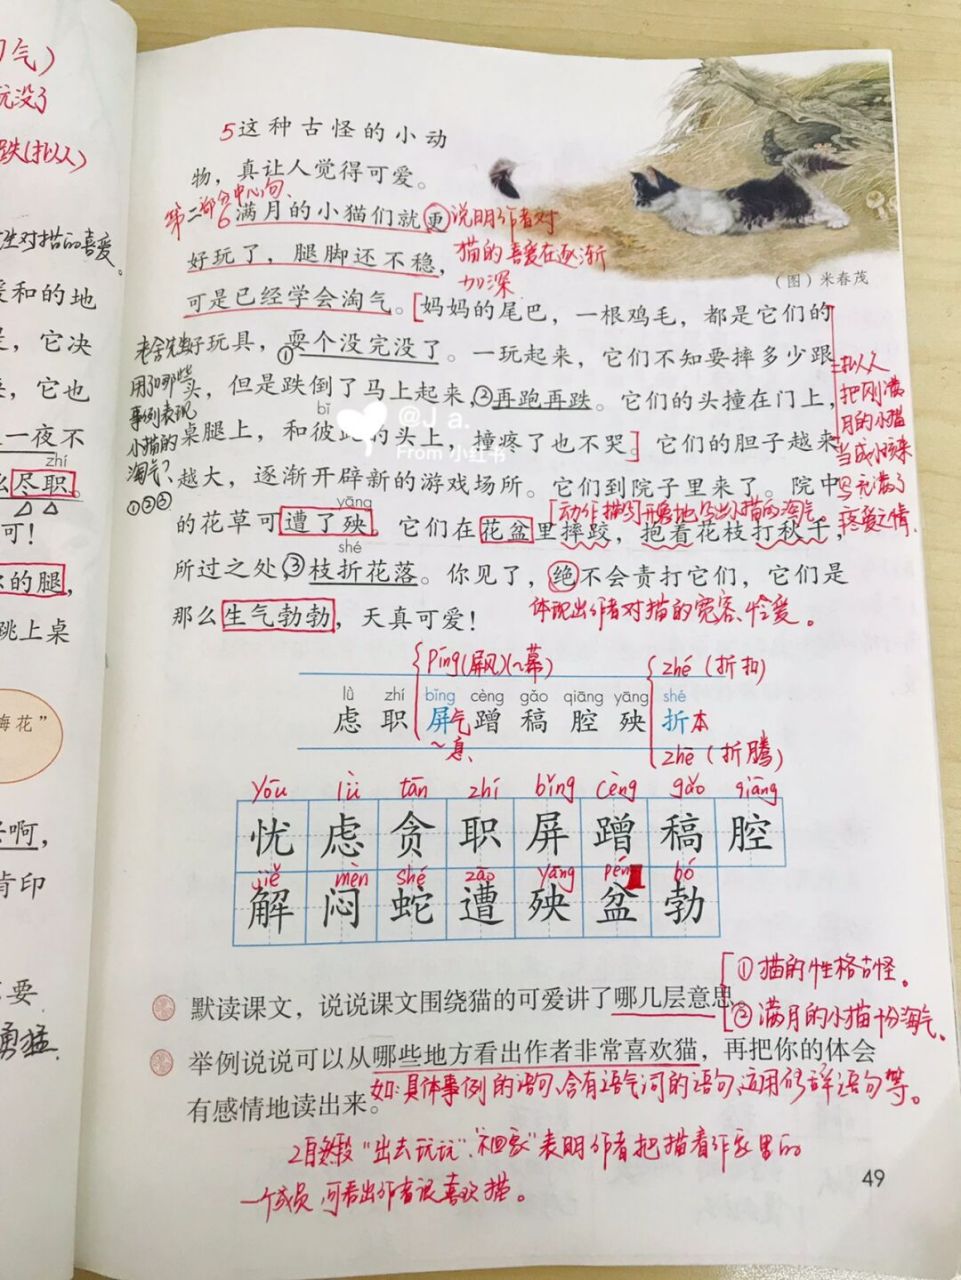 刁气）
玩没了
跌(拟人)
生对猫的喜爱。
暖和的地
，它决
，它也
一夜不
zhí
么尽职。
可！
的腿，
跳上桌
梅花”
啊，
肯印
要
勇猛.
5这种古怪的小动
物，真让人觉得可爱。
第二部分中心句.
6满月的小猫们就更
好玩了，腿脚还不稳，
可是已经学会淘气。[妈妈的尾巴，一根鸡毛，都是它们的
说明作者对
猫的喜爱在逐渐
加深
（图）米春茂
好玩具，①耍个没完没了。一玩起来，它们不知要摔多少跟
头，但是跌倒了马上起来，②再跑再跌。它们的头撞在门上，
bǐ
桌腿上，和彼此的头上，撞疼了也不哭]。它们的胆子越来
越大，逐渐开辟新的游戏场所。它们到院子里来了。院中
yāng
的花草可遭了殃。它们在花盆里摔跤，抱着花枝打秋千，
[动作描写]
写出小猫的淘气。
shé
所过之处，③枝折花落。你见了，绝不会责打它们，它们是
那么生气勃勃，天真可爱！
体现出作者对猫的宽容、怜爱。
老舍先生
用了哪些
事例表现
小猫的
淘气？
①②③
拟人
把刚满
月的小猫
当成小孩来
写,充满了
疼爱之情.
@J a.
From 小红书
píng(屏风)(~幕)
zhé（折扣）
lǜ zhí bǐng cèng gǎo qiāng yāng shé
虑 职 屏气 蹭 稿 腔 殃 折本
~息
zhē（折腾）
yōu lǜ tān zhí bǐng cèng gǎo qiāng
忧 虑 贪 职 屏 蹭 稿 腔
jiě mèn shé zāo yāng pén bó
解 闷 蛇 遭 殃 盆 勃
默读课文，说说课文围绕猫的可爱讲了哪几层意思。
①猫的性格古怪。
②满月的小猫十分淘气。
举例说说可以从哪些地方看出作者非常喜欢猫，再把你的体会
有感情地读出来。
如：具体事例的语句、含有语气词的语句、运用修辞语句等。
2自然段“出去玩玩”、“不回家”表明作者把猫看作家里的
一个成员,可看出作者很喜欢猫。
49